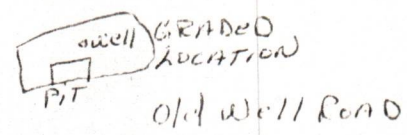 owell GRADED
LOCATION
PIT
Old Well ROAD